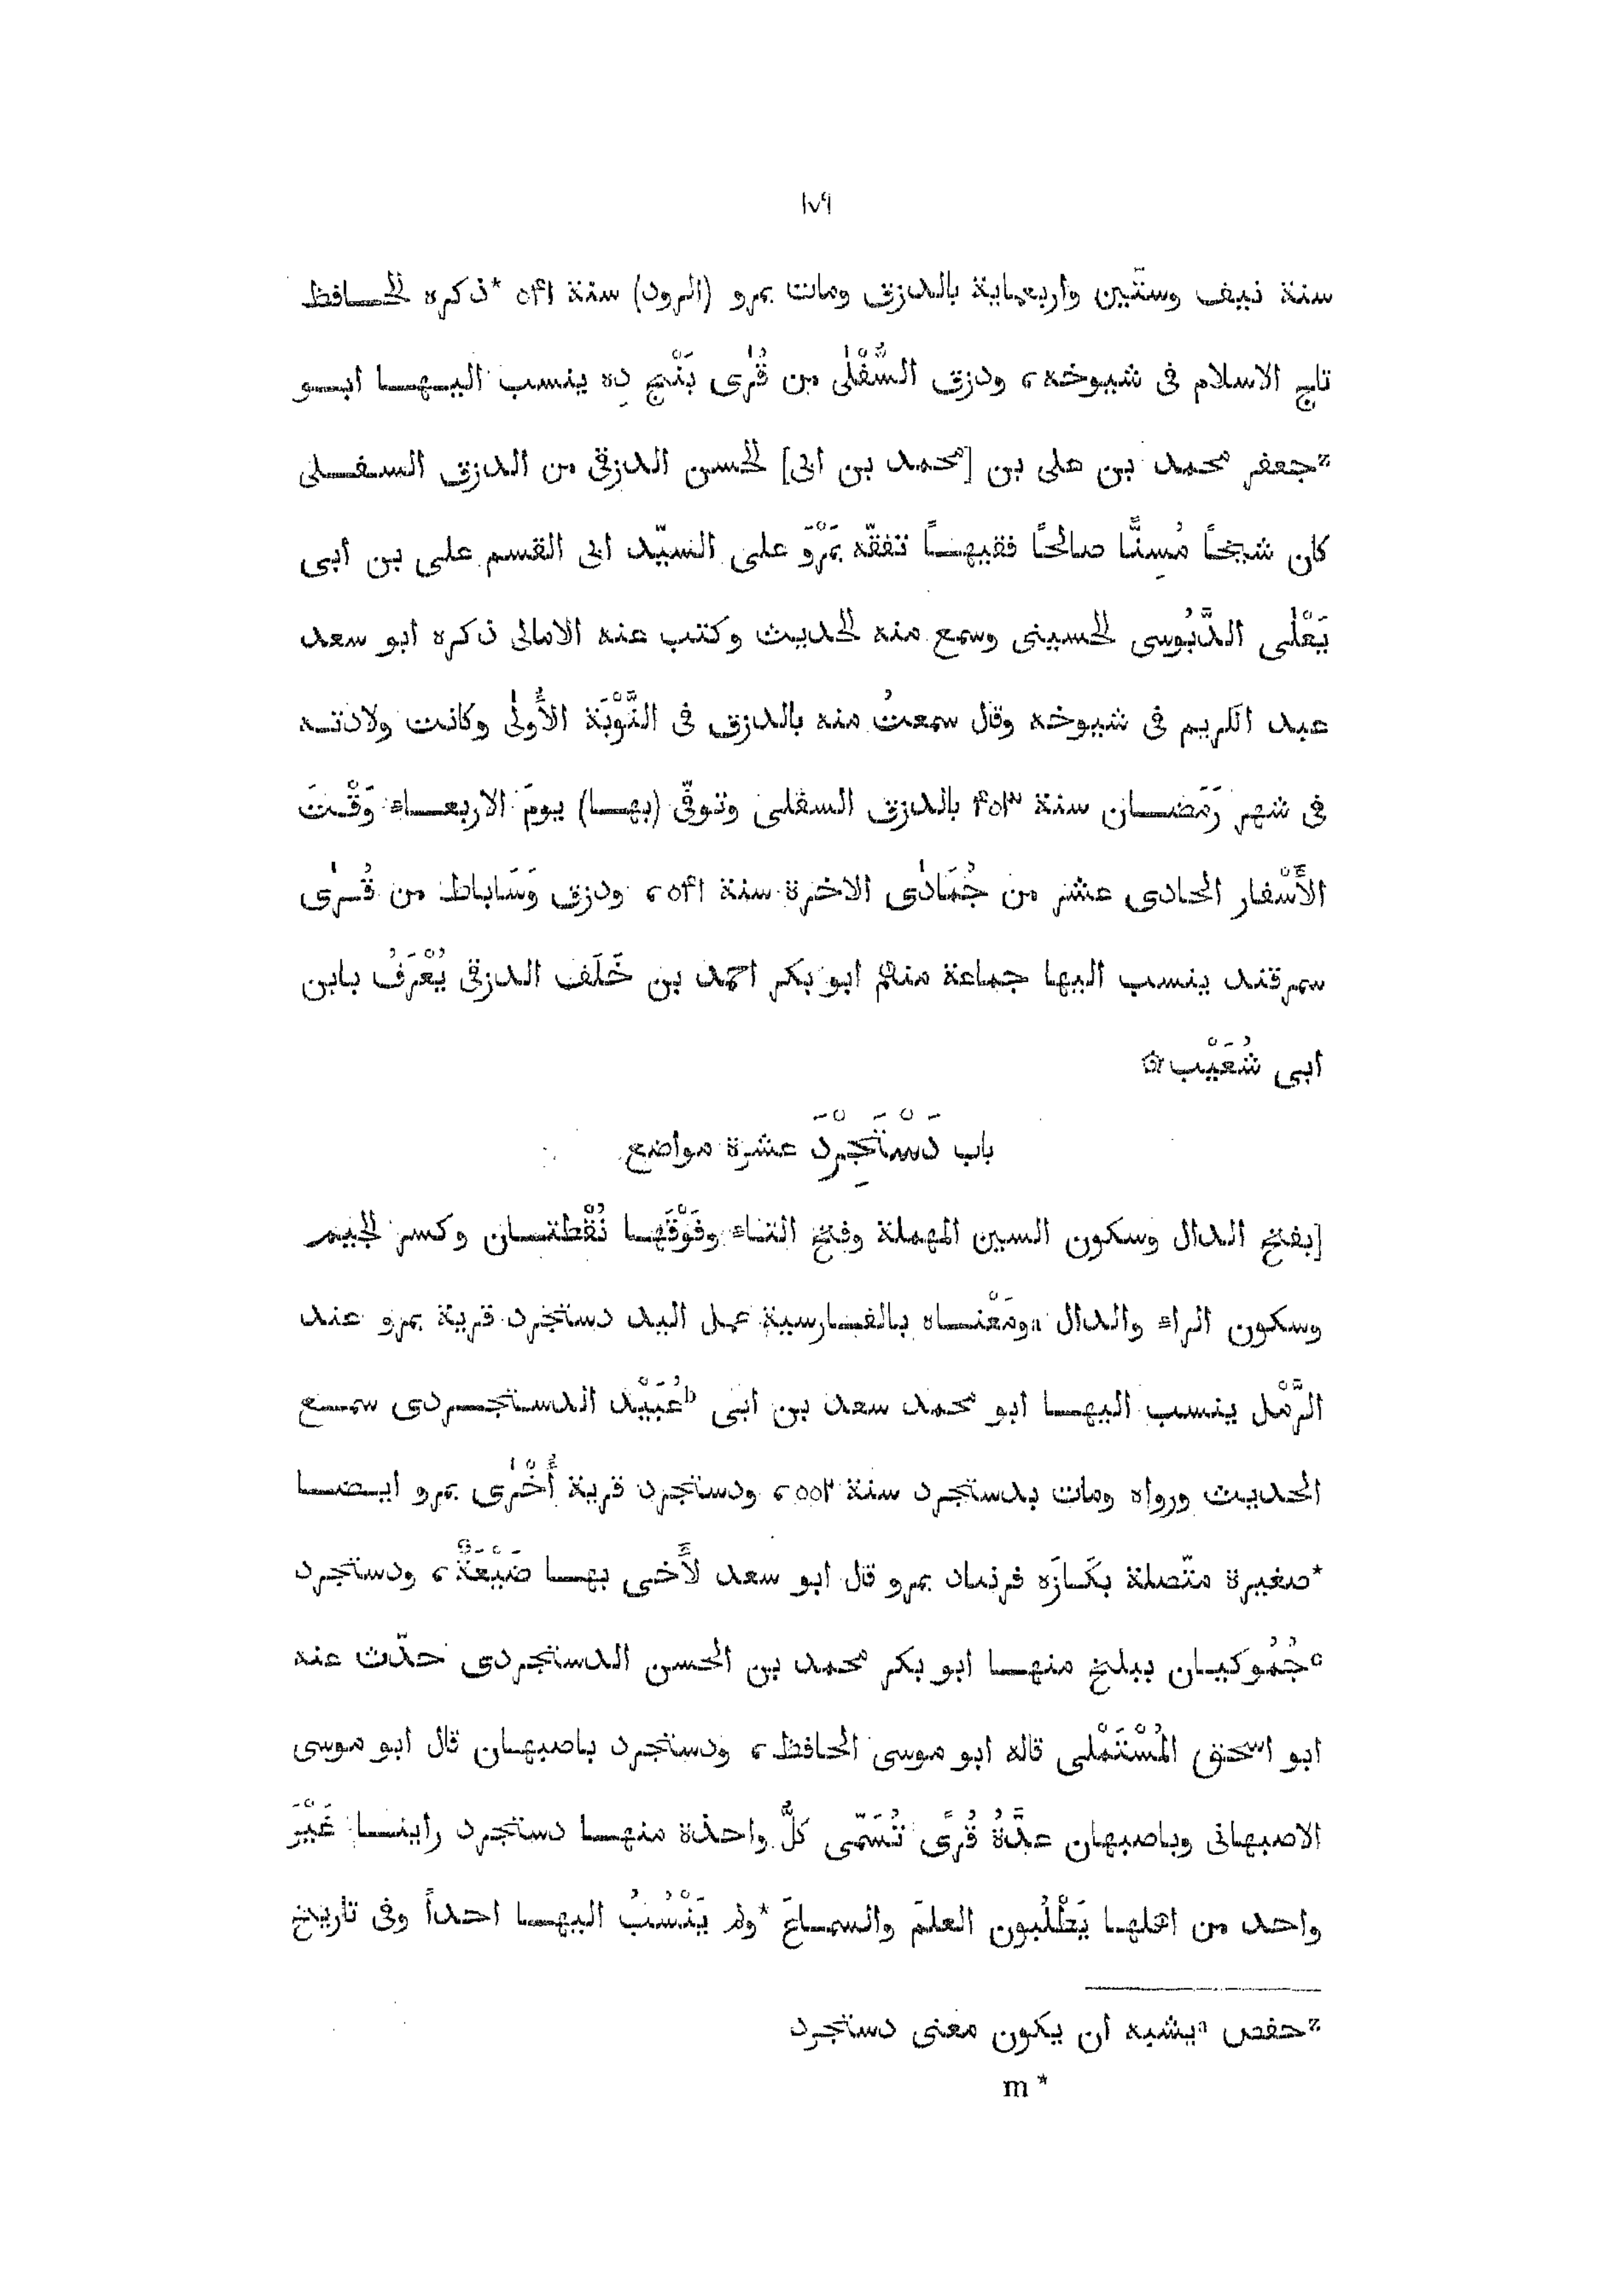 ١٧٩
سنة نيف وستّين واربعماية بالدزق ومات بمرو (الرود) سنة ٥٤١ *ذكره الحافظ
تاج الاسلام فى شيوخه، ودزق السُّفْلٰى من قُرٰى بَنْج دِه ينسب اليها ابو
zجعفر محمد بن على بن [محمد بن ابى] الحسن الدزقى من الدزق السفلى
كان شيخاً مُسِنًّا صالحاً فقيهاً تفقّه بمَرْوَ على السيّد ابى القسم على بن أبى
يَعْلٰى الدَّبُوسى الحسينى وسمع منه الحديث وكتب عنه الامالى ذكره ابو سعد
عبد الكريم فى شيوخه وقال سمعتُ منه بالدزق فى النَّوْبَة الأُولٰى وكانت ولادته
فى شهر رَمَضان سنة ٤٥٣ بالدزق السفلى وتوفّى (بها) يومَ الاربعاء وَقْتَ
الأَسْفار الحادى عشر من جُمَادٰى الاخرة سنة ٥٤١، ودزق وَسَاباط من قُرٰى
سمرقند ينسب اليها جماعة منهم ابو بكر احمد بن خَلَف الدزقى يُعْرَفُ بابن
ابى شُعَيْب۞
باب دَسْتَجِرْدَ عشرة مواضع
[بفتح الدال وسكون السين المهملة وفتح التاء وفَوْقَها نُقْطتان وكسر الجيم
وسكون الراء والدال aومَعْناه بالفارسية عمل اليد دستجرد قرية بمرو عند
الرَّمْل ينسب اليها ابو محمد سعد بن ابى bعُبَيْد الدستجردى سمع
الحديث ورواه ومات بدستجرد سنة ٥٥٢، ودستجرد قرية أُخْرٰى بمرو ايضا
*صغيرة متّصلة بكَازَه فرنماد بمرو قال ابو سعد لأَخى بها ضَيْعَةٌ، ودستجرد
cجُمُوكيان ببلخ منها ابو بكر محمد بن الحسن الدستجردى حدّث عنه
ابو اسحٰق المُسْتَمْلى قاله ابو موسى الحافظ، ودستجرد باصبهان قال ابو موسى
الاصبهانى وباصبهان عِدَّةُ قُرًى تُسَمّى كلُّ واحدة منها دستجرد رأينا غَيْرَ
واحد من اهلها يَطْلُبون العلمَ والسماعَ *ولم يَنْسُبُ اليها احداً وفى تاريخ
zحفص aيشبه ان يكون معنى دستجرد
m *